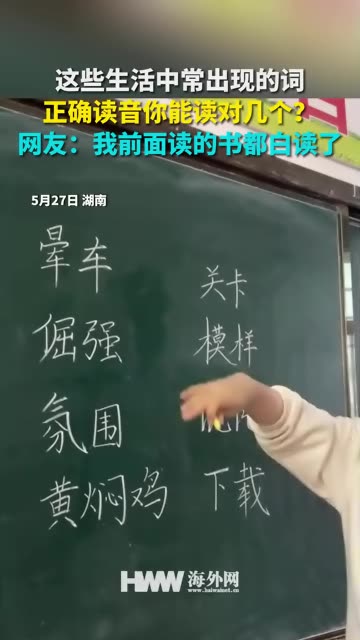 这些生活中常出现的词
正确读音你能读对几个？
网友：我前面读的书都白读了
5月27日 湖南
晕车
倔强
氛围
黄焖鸡
关卡
模样
下载
HWW 海外网
www.haiwainet.cn